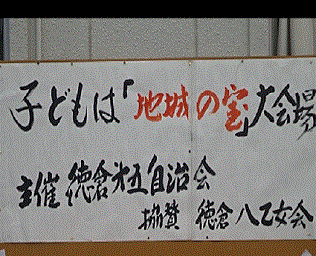 子どもは「地域の宝」大会場
主催 徳倉㐧五自治会
協賛 徳倉八乙女会